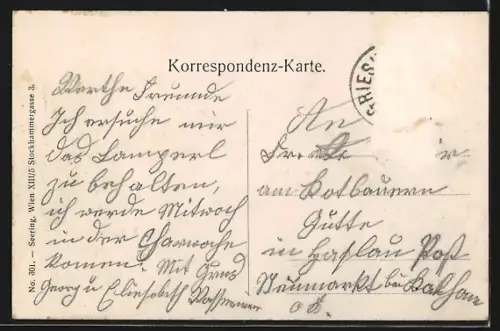 Korrespondenz-Karte.
RIES
No. 301. — Seering, Wien XIII/5 Stockhammergasse 3.
Werthe Freunde
Ich ersuche mir
das Lamperl
zu behalten,
ich werde Mitwoch
in der Charwoche
komen. Mit Grus
Georg u Eliesabeth
An
am Kotbauern
Gütte
in Haslau Post
Neumarkt bei